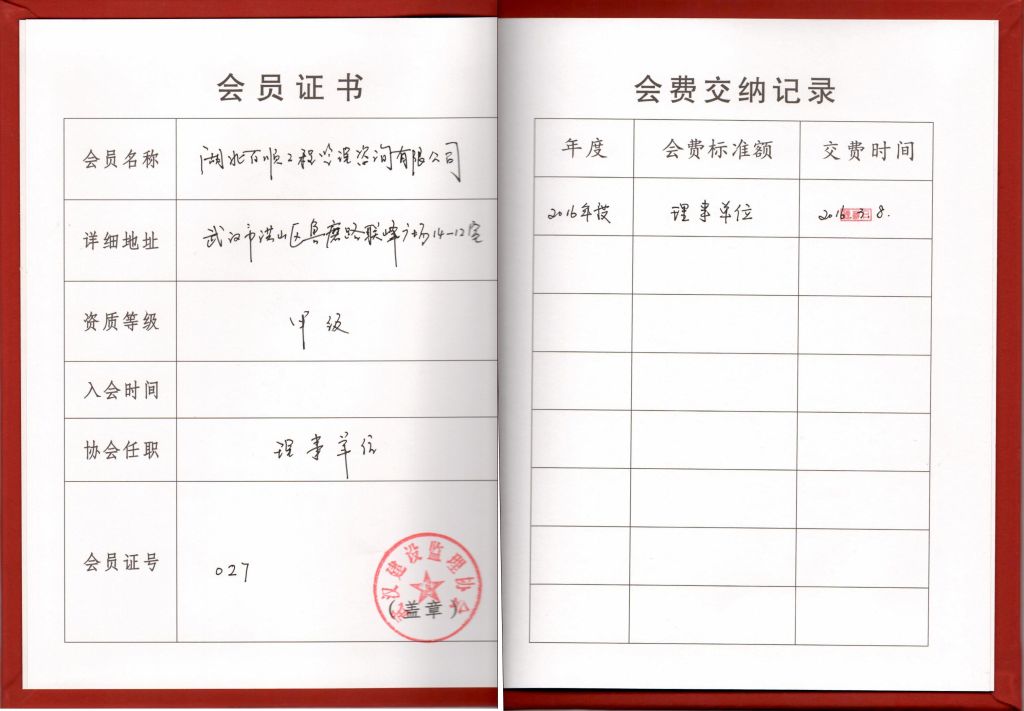 会员证书
会员名称 湖北百顺工程管理咨询有限公司
详细地址 武汉市洪山区鲁磨路联峰广场14-12室
资质等级 甲级
入会时间
协会任职 理事单位
会员证号 027
武汉建设监理协会
(盖章)
会费交纳记录
年度 会费标准额 交费时间
2016年度 理事单位 2016.3.8.